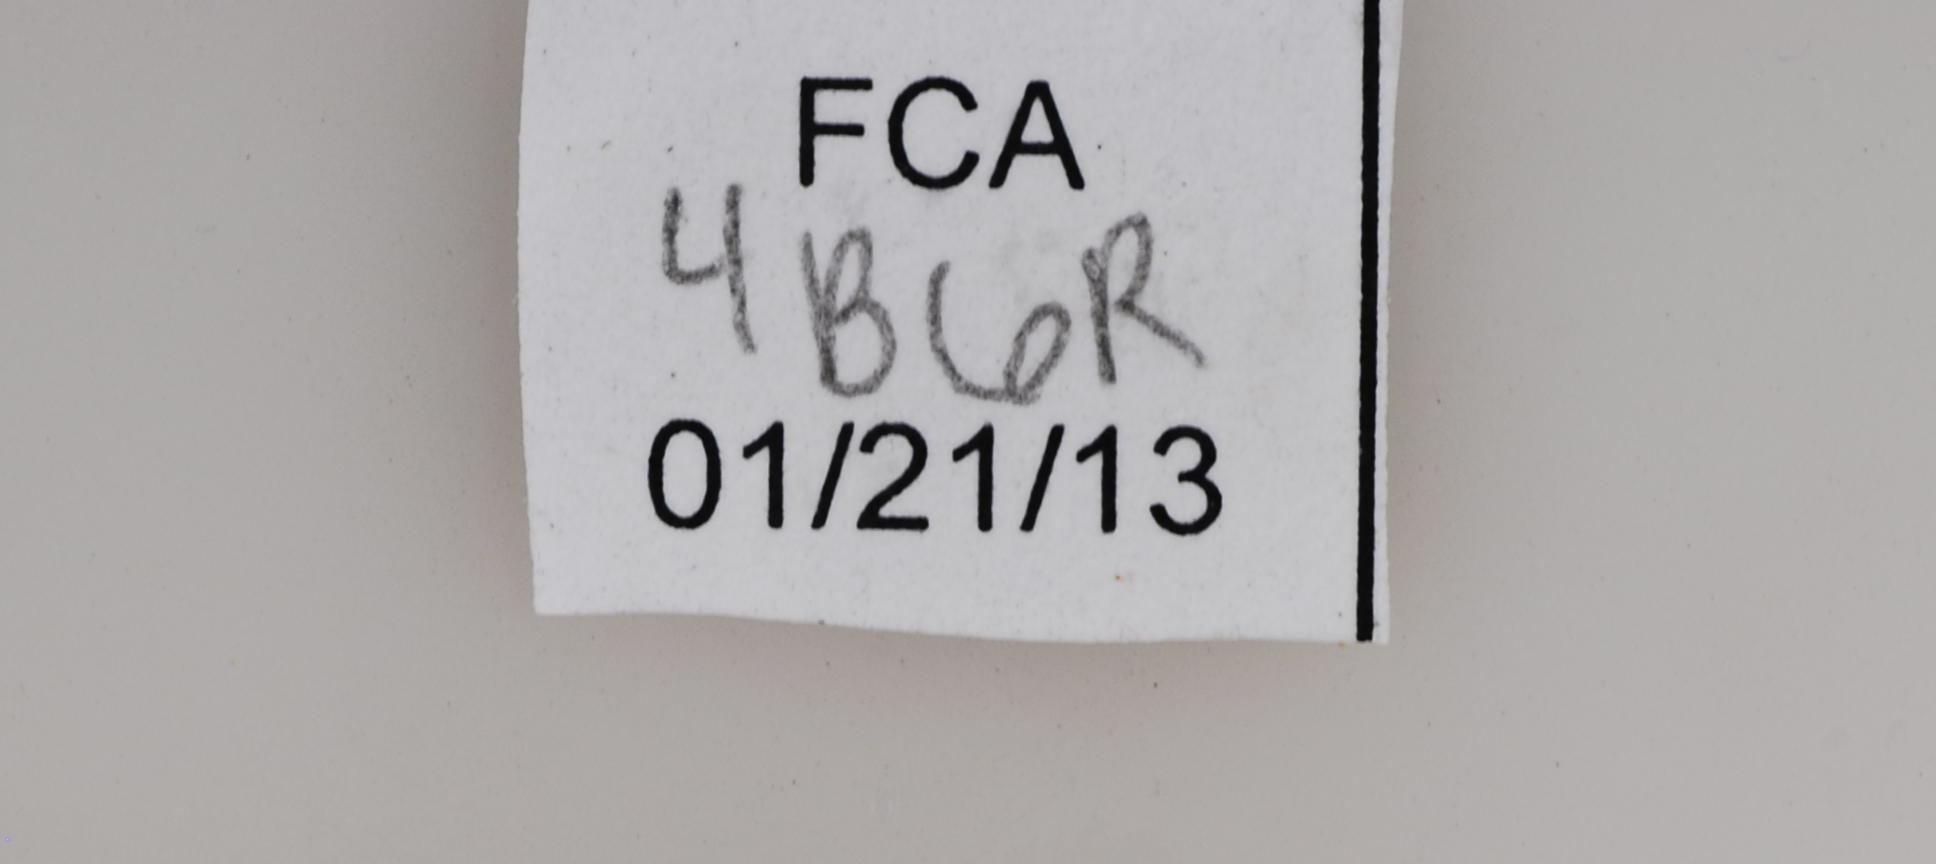 FCA
4B6R
01/21/13